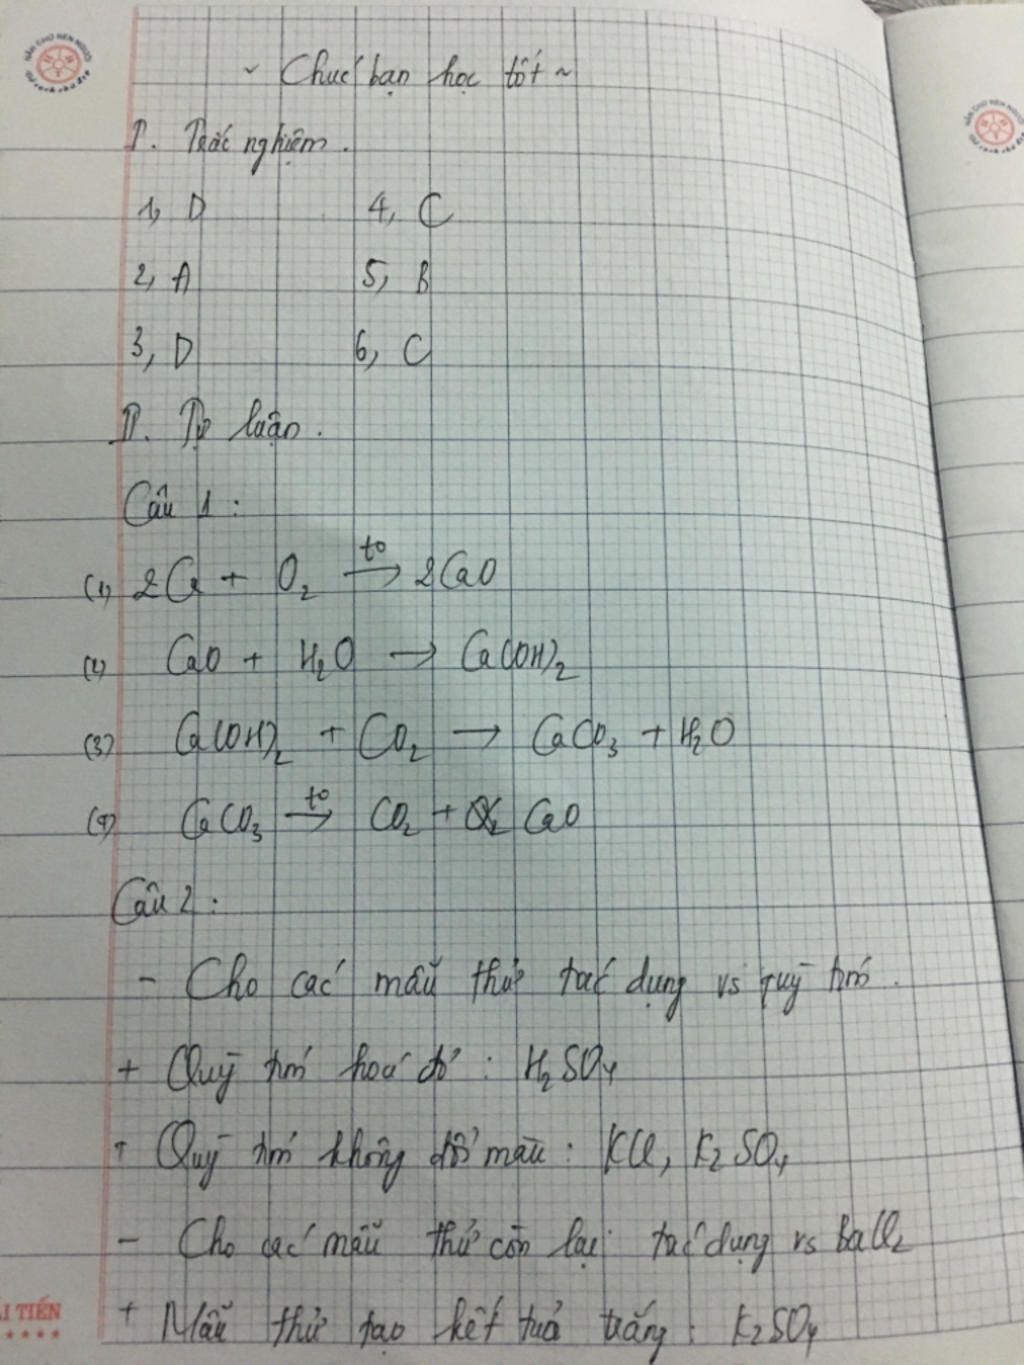 ~ Chúc bạn học tốt ~
I. Trắc nghiệm.
1, D 4, C
2, A 5, B
3, D 6, C
II. Tự luận.
Câu 1:
(1) 2Ca + O₂ t° → 2CaO
(2) CaO + H₂O → Ca(OH)₂
(3) Ca(OH)₂ + CO₂ → CaCO₃ + H₂O
(4) CaCO₃ t° → CO₂ + CaO
Câu 2:
- Cho các mẫu thử tác dụng vs quỳ tím.
+ Quỳ tím hoá đỏ: H₂SO₄
+ Quỳ tím không đổi màu: KCl, K₂SO₄
- Cho các mẫu thử còn lại tác dụng vs BaCl₂
+ Mẫu thử tạo kết tủa trắng: K₂SO₄